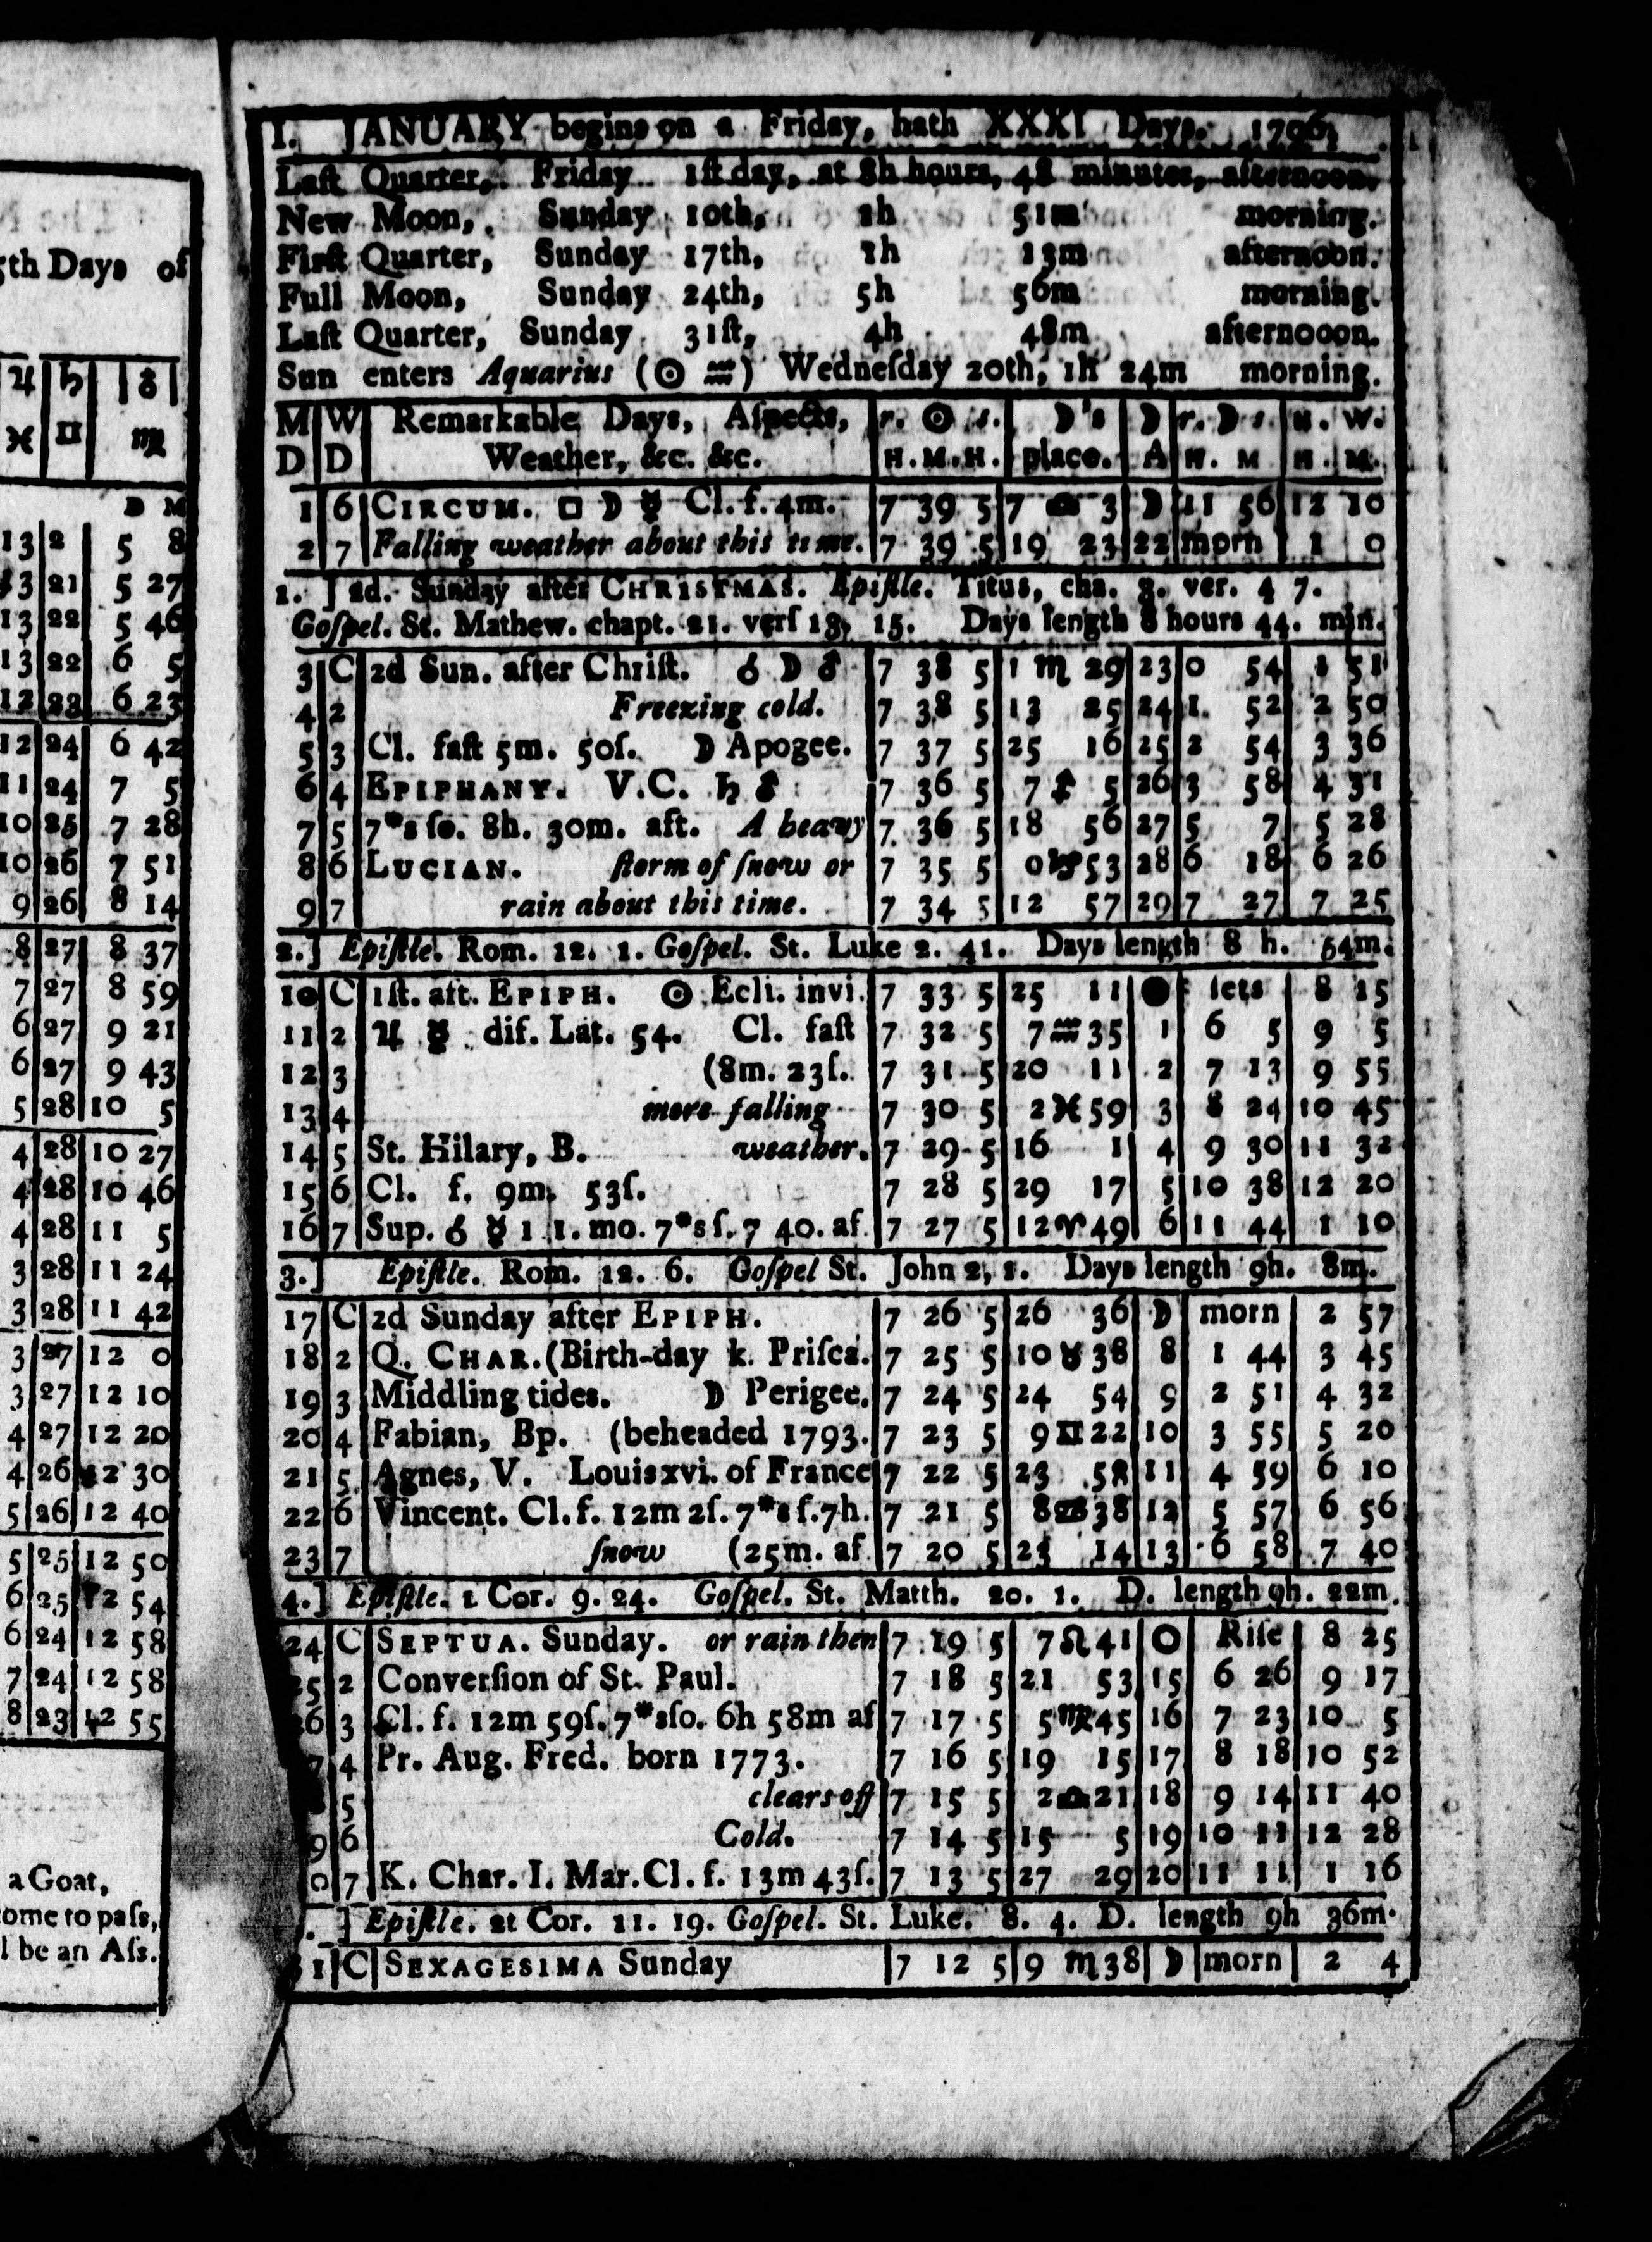 th Days of
♃ | ♄ | ♂
♓ | ♊ | ♍
D M
13 2 5 8
13 21 5 27
13 22 5 46
13 22 6 5
12 23 6 23
12 24 6 42
11 24 7 5
10 25 7 28
10 26 7 51
9 26 8 14
8 27 8 37
7 27 8 59
6 27 9 21
6 27 9 43
5 28 10 5
4 28 10 27
4 28 10 46
4 28 11 5
3 28 11 24
3 28 11 42
3 27 12 0
3 27 12 10
4 27 12 20
4 26 12 30
5 26 12 40
5 25 12 50
6 25 12 54
6 24 12 58
7 24 12 58
8 23 12 55
a Goat,
ome to paſs,
l be an Aſs.
I. JANUARY begins on a Friday, hath XXXI Days. 1796.
Laſt Quarter, Friday 1ſt day, at 8h hours, 48 minutes, afternoon.
New Moon, Sunday 10th, 1h 51m morning.
Firſt Quarter, Sunday 17th, 1h 13m afternoon.
Full Moon, Sunday 24th, 5h 56m morning.
Laſt Quarter, Sunday 31ſt, 4h 48m afternooon.
Sun enters Aquarius (☉ ♒) Wedneſday 20th, 1h 24m morning.
M W Remarkable Days, Aſpects, r. ☉ s. ☽'s ☽ r. ☽ s. H. W.
D D Weather, &c. &c. H. M. H. place. A H. M H. M.
1 6 CIRCUM. □ ☽ ☿ Cl. f. 4m. 7 39 5 7 ♎ 3 ☽ 11 56 12 10
2 7 Falling weather about this time. 7 39 5 19 23 22 morn 1 0
1. ] 2d. Sunday after CHRISTMAS. Epiſtle. Titus, cha. 3. ver. 4 7.
Goſpel. St. Mathew. chapt. 21. verſ 13, 15. Days length 8 hours 44. min.
3 C 2d Sun. after Chriſt. ☌ ☽ ♂ 7 38 5 1 ♏ 29 23 0 54 1 51
4 2 Freezing cold. 7 38 5 13 25 24 1. 52 2 50
5 3 Cl. faſt 5m. 50ſ. ☽ Apogee. 7 37 5 25 16 25 2 54 3 36
6 4 EPIPHANY. V.C. ♄ ♂ 7 36 5 7 ♐ 5 26 3 58 4 31
7 5 7*s ſo. 8h. 30m. aft. A heavy 7 36 5 18 56 27 5 7 5 28
8 6 LUCIAN. ſtorm of ſnow or 7 35 5 0 ♑ 53 28 6 18 6 26
9 7 rain about this time. 7 34 5 12 57 29 7 27 7 25
2.] Epiſtle. Rom. 12. 1. Goſpel. St. Luke 2. 41. Days length 8 h. 54m.
10 C 1ſt. aft. EPIPH. ☉ Ecli. invi. 7 33 5 25 11 ● ſets 8 15
11 2 ♃ ☿ dif. Lat. 54. Cl. faſt 7 32 5 7 ♒ 35 1 6 5 9 5
12 3 (8m. 23ſ. 7 31 5 20 11 2 7 13 9 55
13 4 more falling 7 30 5 2 ♓ 59 3 8 24 10 45
14 5 St. Hilary, B. weather. 7 29 5 16 1 4 9 30 11 32
15 6 Cl. f. 9m. 53ſ. 7 28 5 29 17 5 10 38 12 20
16 7 Sup. ☌ ☿ 1 1. mo. 7*s ſ. 7 40. af. 7 27 5 12 ♈ 49 6 11 44 1 10
3.] Epiſtle. Rom. 12. 6. Goſpel St. John 2, 1. Days length 9h. 8m.
17 C 2d Sunday after EPIPH. 7 26 5 26 36 ☽ morn 2 57
18 2 Q. CHAR. (Birth-day k. Priſca. 7 25 5 10 ♉ 38 8 1 44 3 45
19 3 Middling tides. ☽ Perigee. 7 24 5 24 54 9 2 51 4 32
20 4 Fabian, Bp. (beheaded 1793. 7 23 5 9 ♊ 22 10 3 55 5 20
21 5 Agnes, V. Louis xvi. of France 7 22 5 23 58 11 4 59 6 10
22 6 Vincent. Cl. f. 12m 2ſ. 7*s ſ. 7h. 7 21 5 8 ♋ 38 12 5 57 6 56
23 7 ſnow (25m. af. 7 20 5 23 14 13 6 58 7 40
4.] Epiſtle. 1 Cor. 9. 24. Goſpel. St. Matth. 20. 1. D. length 9h. 22m.
24 C SEPTUA. Sunday. or rain then 7 19 5 7 ♌ 41 O Riſe 8 25
25 2 Converſion of St. Paul. 7 18 5 21 53 15 6 26 9 17
26 3 Cl. f. 12m 59ſ. 7*s ſo. 6h 58m af 7 17 5 5 ♍ 45 16 7 23 10 5
7 4 Pr. Aug. Fred. born 1773. 7 16 5 19 15 17 8 18 10 52
5 clears off 7 15 5 2 ♎ 21 18 9 14 11 40
9 6 Cold. 7 14 5 15 5 19 10 11 12 28
0 7 K. Char. I. Mar. Cl. f. 13m 43ſ. 7 13 5 27 29 20 11 11 1 16
. ] Epiſtle. 2t Cor. 11. 19. Goſpel. St. Luke. 8. 4. D. length 9h 36m.
31 C SEXAGESIMA Sunday 7 12 5 9 ♏ 38 ☽ morn 2 4